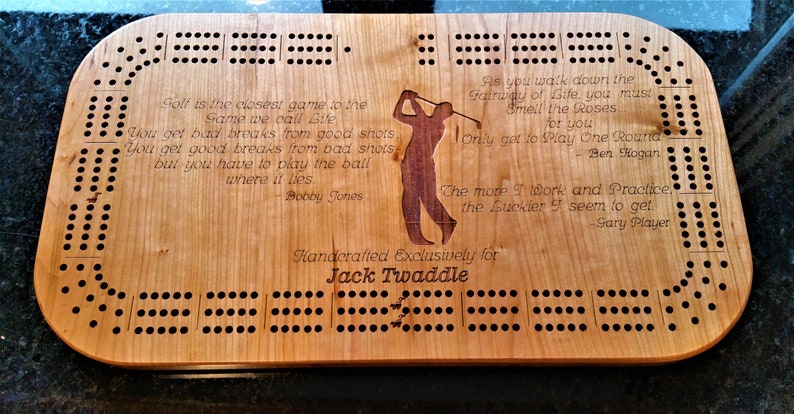 Golf is the closest game to the
Game we call Life.
You get bad breaks from good shots,
You get good breaks from bad shots,
but you have to play the ball
where it lies.
-Bobby Jones
As you walk down the
Fairway of Life, you must
Smell the Roses...
for you
Only get to Play One Round.
- Ben Hogan
The more I Work and Practice,
the Luckier I seem to get.
-Gary Player
Handcrafted Exclusively for
Jack Twaddle